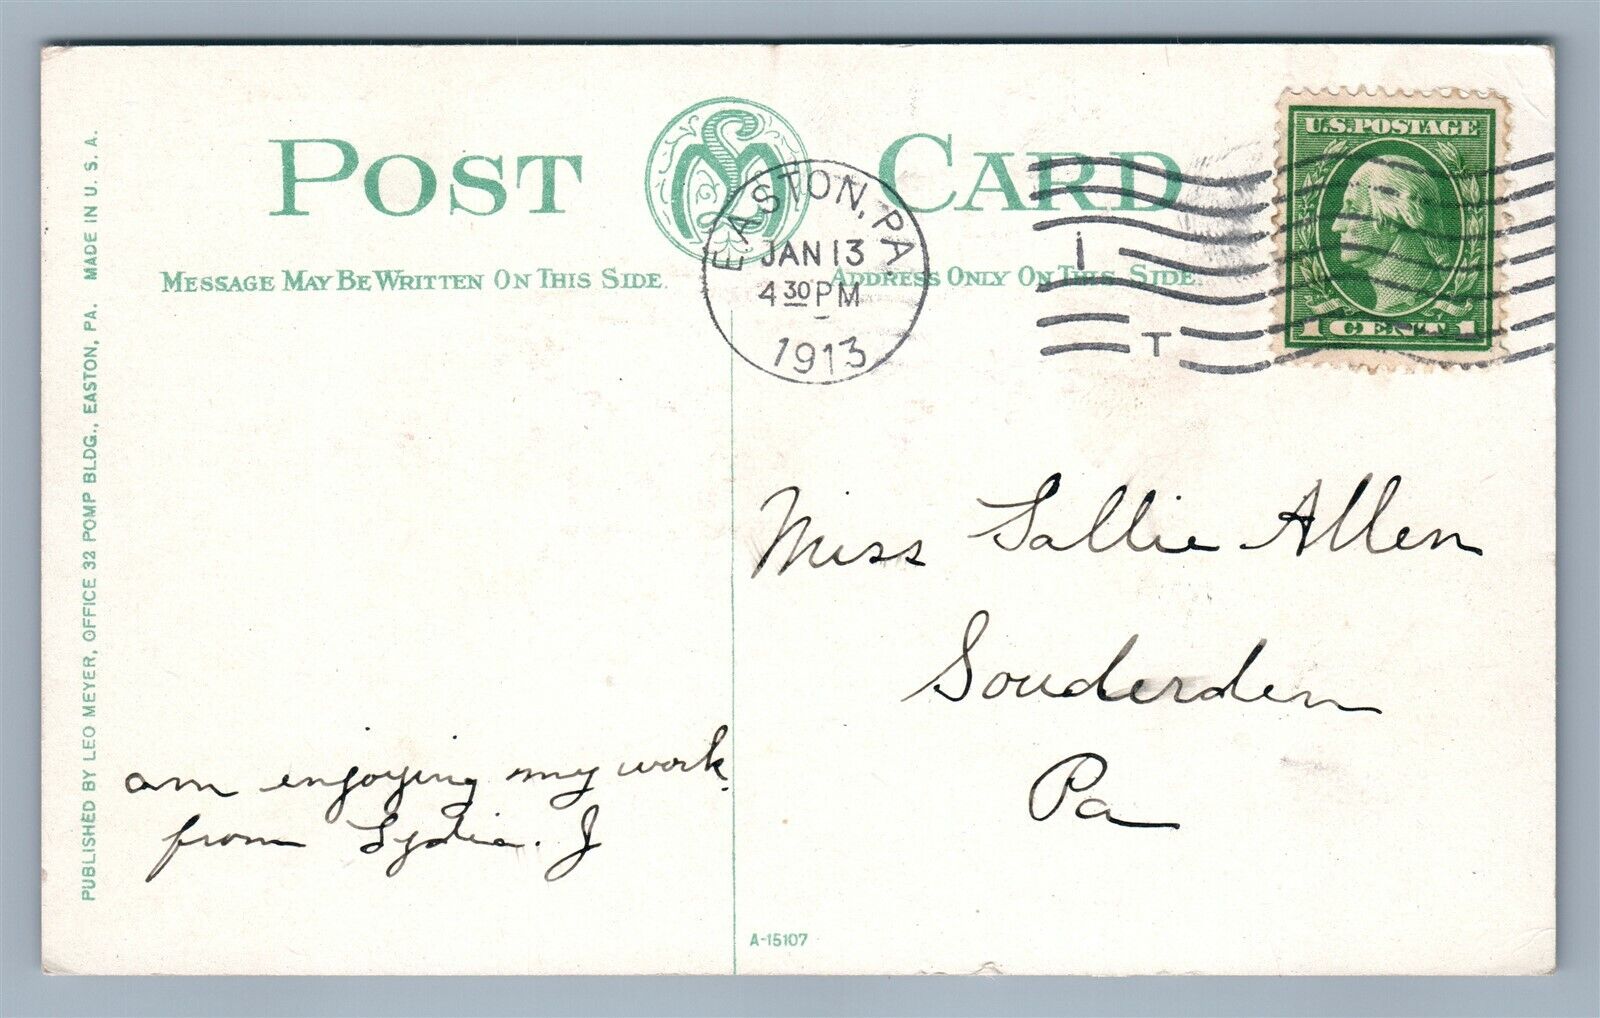 POST CARD
MESSAGE MAY BE WRITTEN ON THIS SIDE.
ADDRESS ONLY ON THIS SIDE.
EASTON, PA.
JAN 13
4 30 PM
1913
1
T
U.S. POSTAGE
1 CENT 1
PUBLISHED BY LEO MEYER, OFFICE 32 POMP BLDG., EASTON, PA. MADE IN U. S. A.
am enjoying my work.
from Lydia. J
Miss Sallie Allen
Souderden
Pa
A-15107